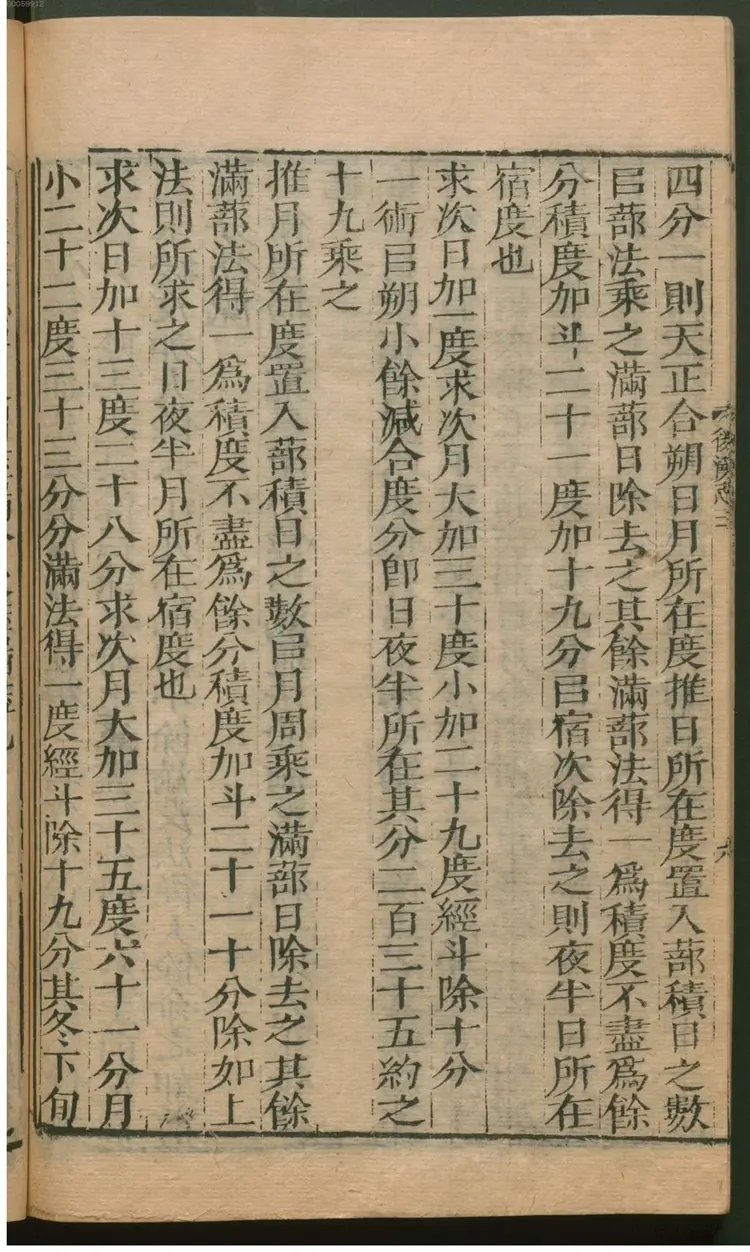 四分一則天正合朔日月所在度推日所在度置入蔀積日之數
㠯蔀法乘之滿蔀日除去之其餘滿蔀法得一爲積度不盡爲餘
分積度加斗二十一度加十九分㠯宿次除去之則夜半日所在
宿度也
求次日加一度求次月大加三十度小加二十九度經斗除十分
一術㠯朔小餘減合度分卽日夜半所在其分二百三十五約之
十九乘之
推月所在度置入蔀積日之數㠯月周乘之滿蔀日除去之其餘
滿蔀法得一爲積度不盡爲餘分積度加斗二十一十分除如上
法則所求之日夜半月所在宿度也
求次日加十三度二十八分求次月大加三十五度六十一分月
小二十二度三十三分分滿法得一度經斗除十九分其冬下旬
後漢志三
00059912